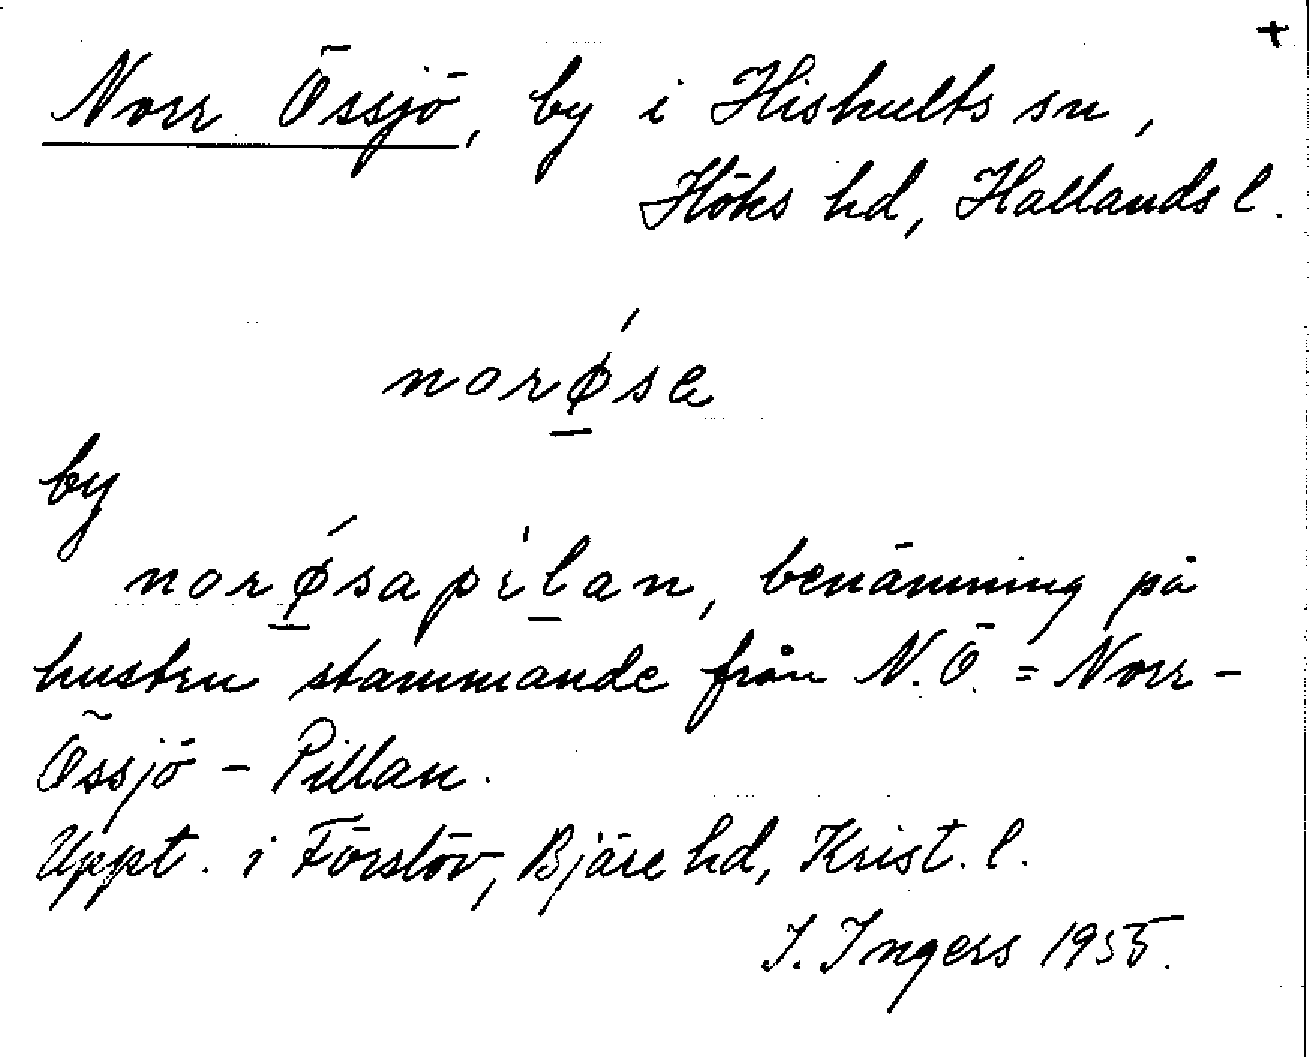 +
Norr Össjö, by i Hishults sn,
Höks hd, Hallands l.
norǿ̲sa
by
norǿ̲sapìl̲an, benämning på
hustru stammande från N.Ö. = Norr-
Össjö - Pillan.
Uppt. i Förslöv, Bjäre hd, Krist. l.
I. Ingers 1955.